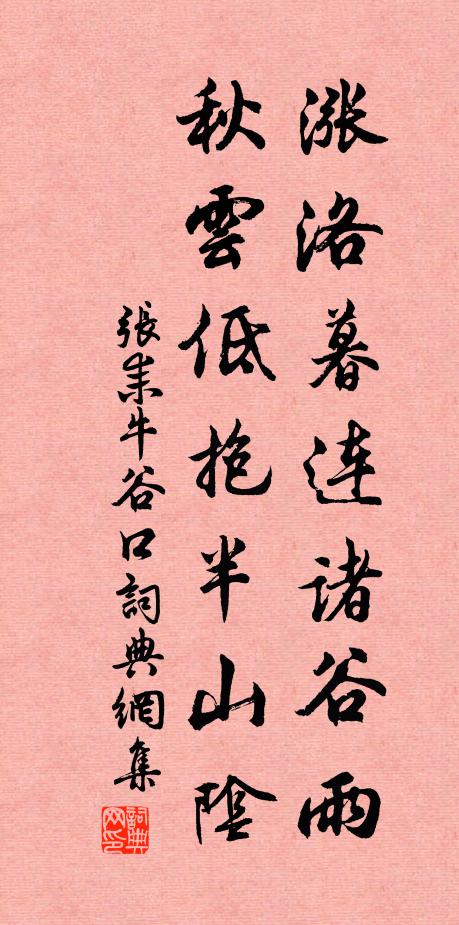 漲洛暮連諸谷雨
秋雲低抱半山陰
張耒牛谷口詞典網集
詞典网印